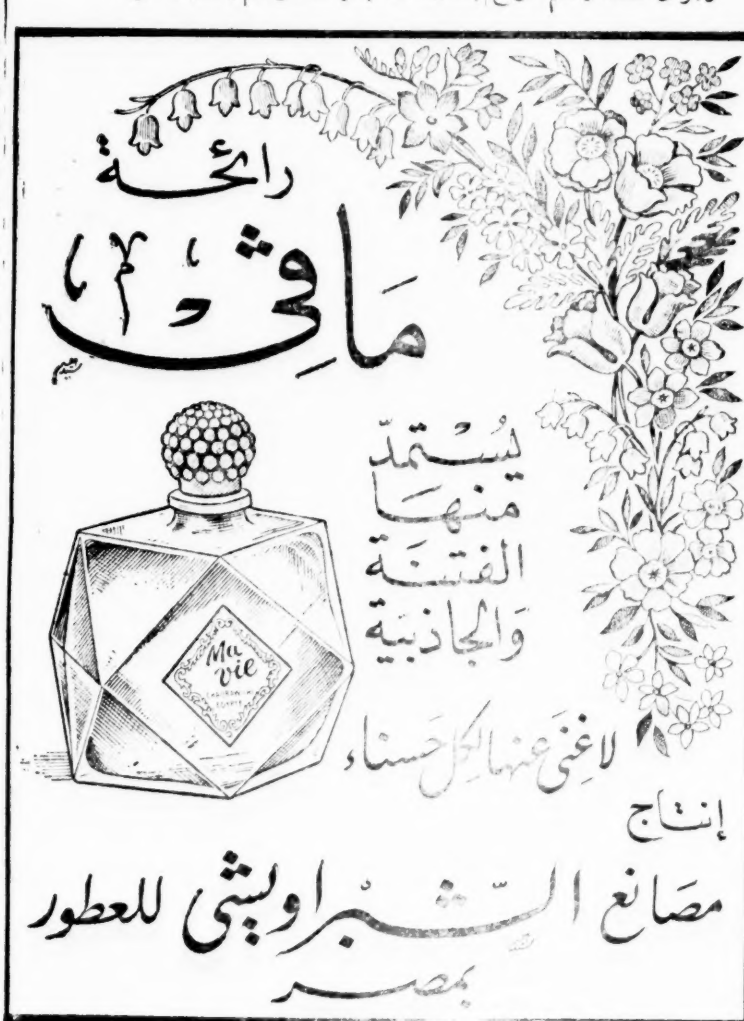 رائحة
مَا ڤِي
يُسْتمدّ
منهَا
الفتنَة
وَالجاذبيَة
Ma
vie
CHABRAWICHI
EGYPTE
لا غِنىَ عَنها لِكلِّ حَسناء
إنتاج
مصَانع الشَّبْراويشي للعطور
بمصر